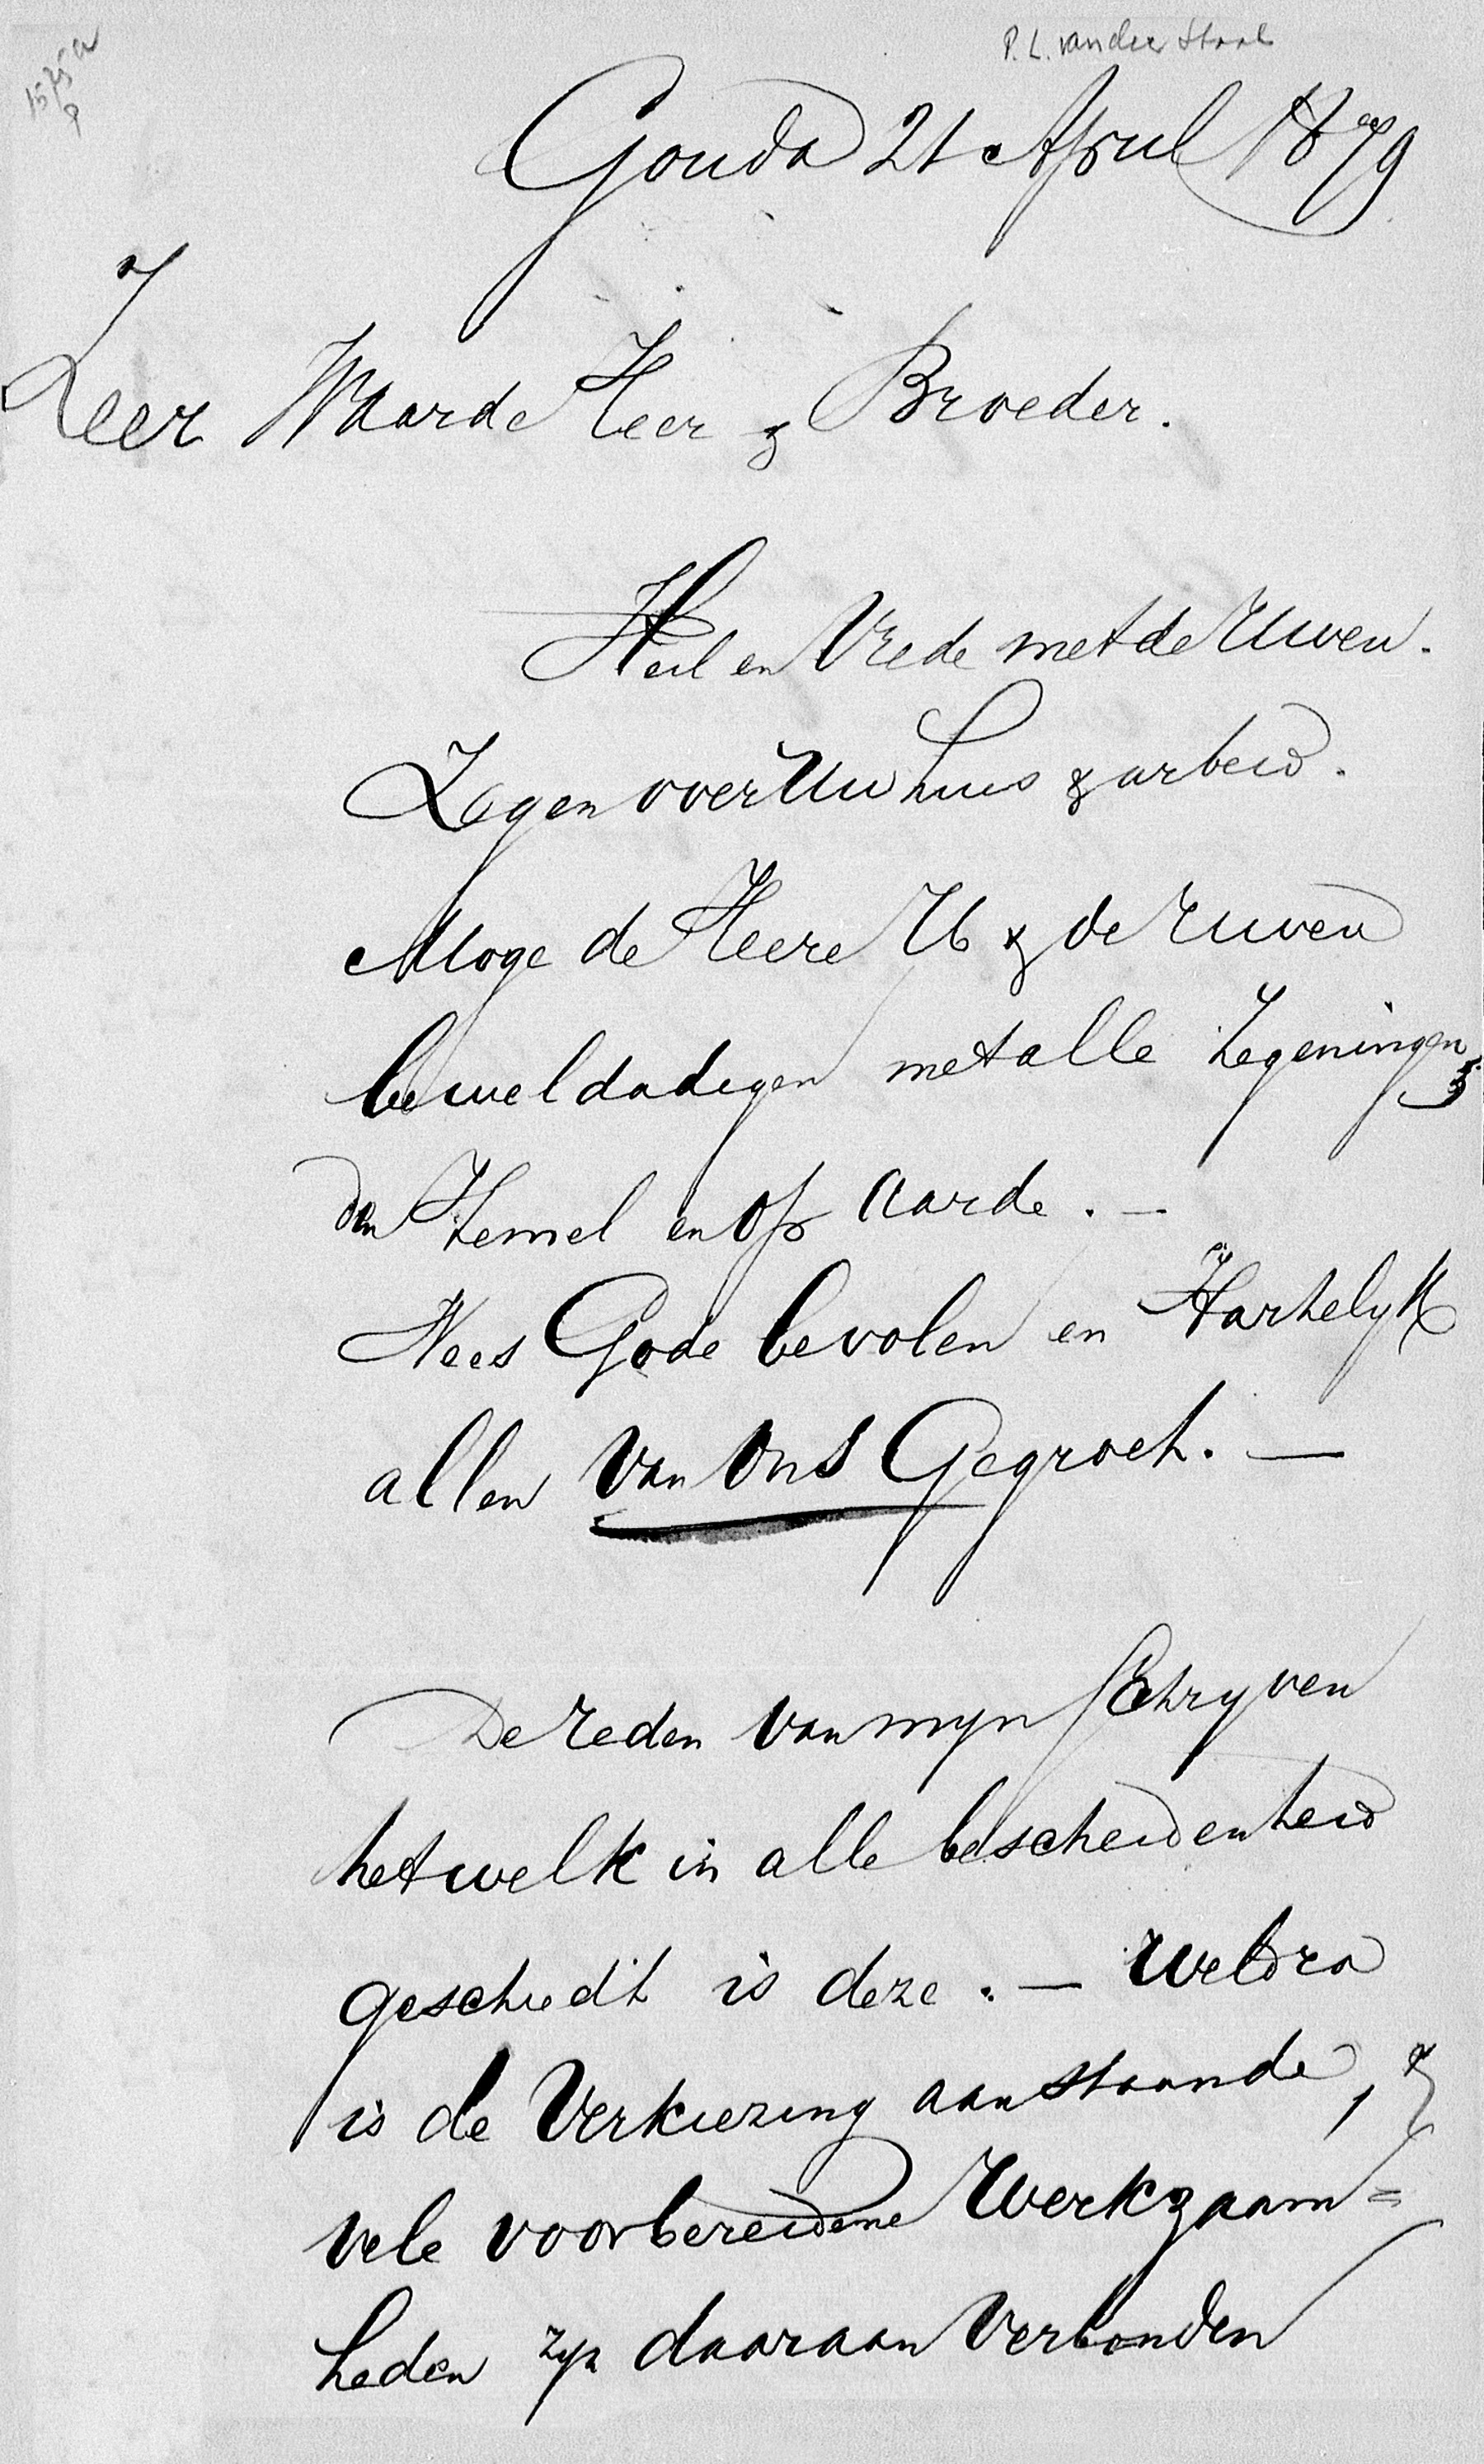 P. L. van der Staal
Gouda 21 April 1879
Zeer Waarde Heer & Broeder.
Heil en Vrede met de Uwen.
Zegen over Uw huis & arbeid.
Moge de Heere U & de Uwen
beweldadigen met alle Zegeningen
den Hemel en op Aarde. —
Wees Gode bevolen en Hartelyk
allen van ons Gegroet. —
De reden van myn Schryven
hetwelk in alle bescheidenheid
geschiedt is deze. — Weldra
is de Verkiezing aanstaande, &
vele voorbereidene Werkzaam=
heden zyn daaraan Verbonden